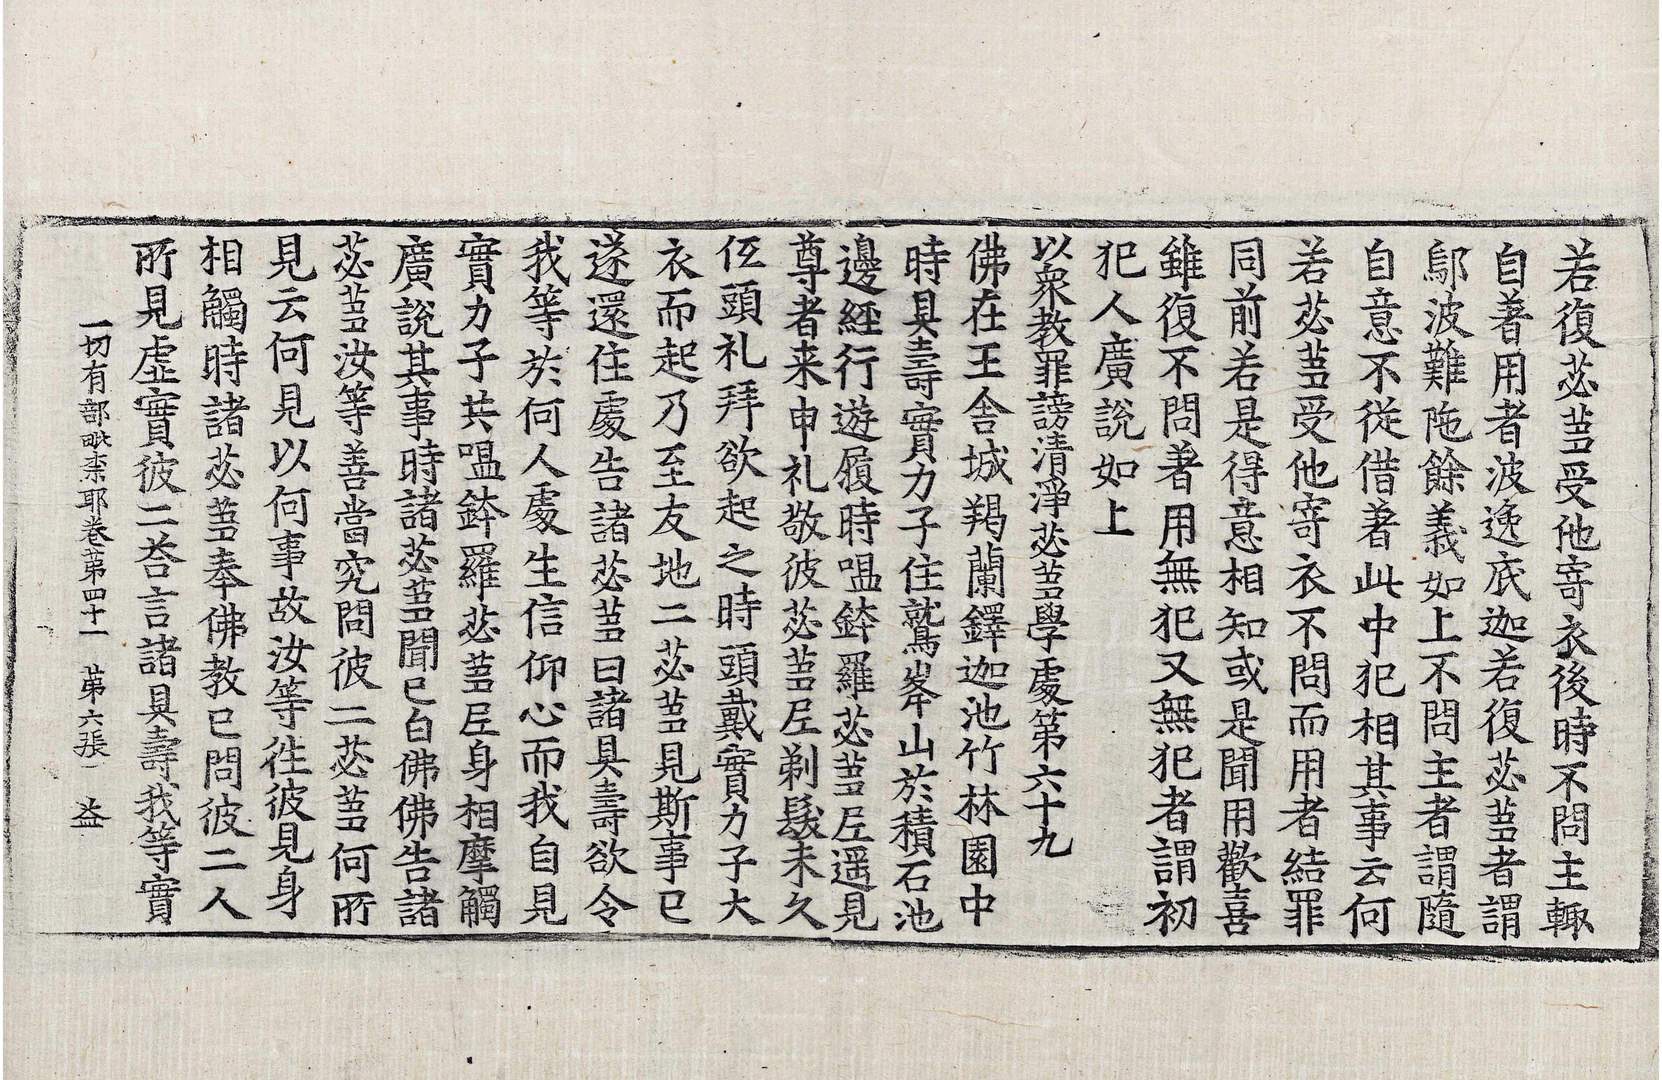 若復苾芻受他寄衣後時不問主輙
自著用者波逸底迦若復苾芻者謂
鄔波難陁餘義如上不問主者謂隨
自意不從借著此中犯相其事云何
若苾芻受他寄衣不問而用者結罪
同前若是得意相知或是聞用歡喜
雖復不問著用無犯又無犯者謂初
犯人廣說如上
以衆教罪謗清淨苾芻學處第六十九
佛在王舍城羯蘭鐸迦池竹林園中
時具壽實力子住鷲峯山於積石池
邊經行遊履時嗢鉢羅苾芻尼遥見
尊者来申礼敬彼苾芻尼剃髮未久
伍頭礼拜欲起之時頭戴實力子大
衣而起乃至友地二苾芻見斯事已
遂還住處告諸苾芻曰諸具壽欲令
我等於何人處生信仰心而我自見
實力子共嗢鉢羅苾芻尼身相摩觸
廣說其事時諸苾芻聞已白佛佛告諸
苾芻汝等善當究問彼二苾芻何所
見云何見以何事故汝等徃彼見身
相觸時諸苾芻奉佛教已問彼二人
所見虛實彼二荅言諸具壽我等實
一切有部毗柰耶卷苐四十一 苐六張 益